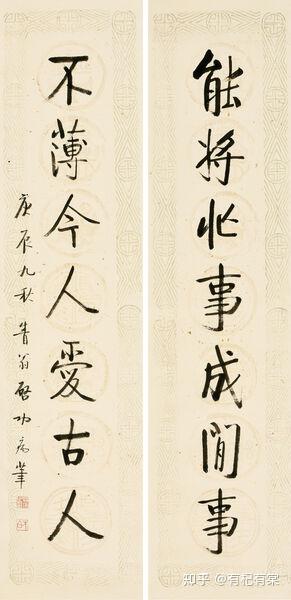 能將忙事成閒事
不薄今人愛古人
庚辰九秋 眚翁啓功病筆
知乎 @有杞有棠